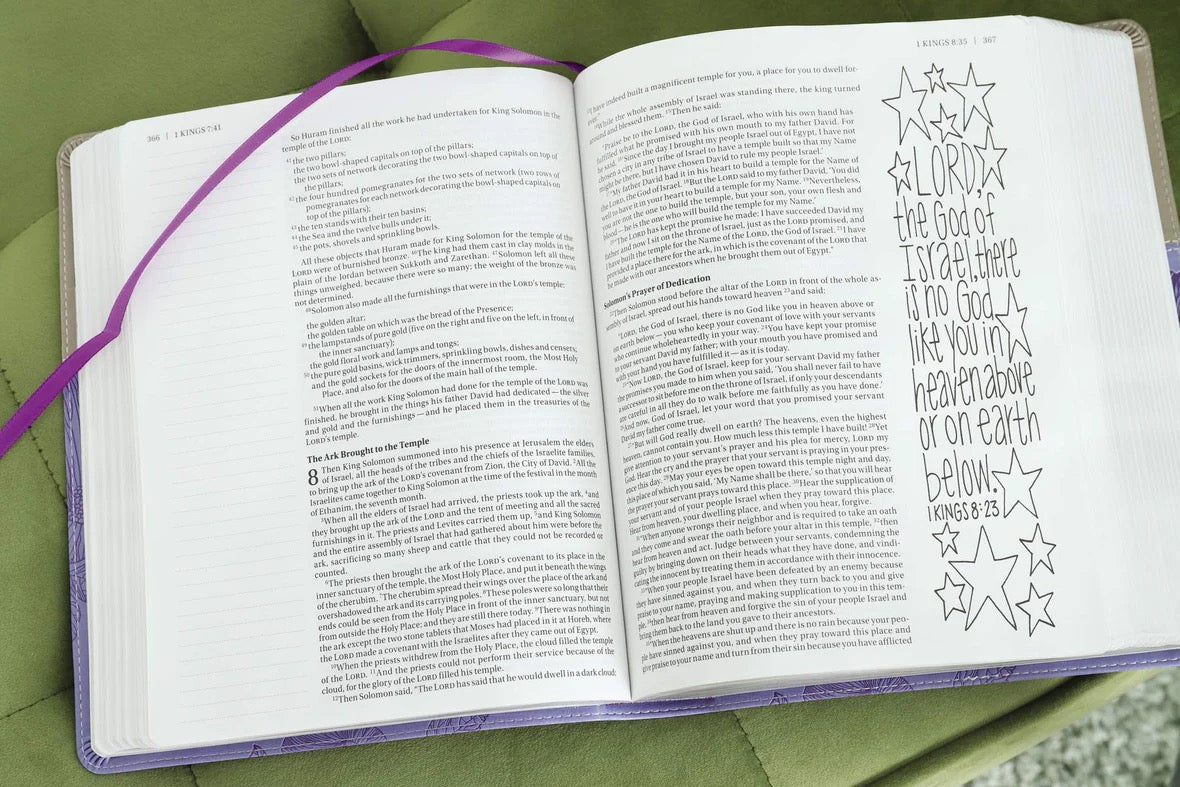 366 | 1 KINGS 7:41
So Huram finished all the work he had undertaken for King Solomon in the
temple of the LORD:
41 the two pillars;
the two bowl-shaped capitals on top of the pillars;
the two sets of network decorating the two bowl-shaped capitals on top of
the pillars;
42 the four hundred pomegranates for the two sets of network (two rows of
pomegranates for each network decorating the bowl-shaped capitals on
top of the pillars);
43 the ten stands with their ten basins;
44 the Sea and the twelve bulls under it;
45 the pots, shovels and sprinkling bowls.
All these objects that Huram made for King Solomon for the temple of the
LORD were of burnished bronze. 46The king had them cast in clay molds in the
plain of the Jordan between Sukkoth and Zarethan. 47Solomon left all these
things unweighed, because there were so many; the weight of the bronze was
not determined.
48Solomon also made all the furnishings that were in the LORD's temple:
the golden altar;
the golden table on which was the bread of the Presence;
49 the lampstands of pure gold (five on the right and five on the left, in front of
the inner sanctuary);
the gold floral work and lamps and tongs;
50 the pure gold basins, wick trimmers, sprinkling bowls, dishes and censers;
and the gold sockets for the doors of the innermost room, the Most Holy
Place, and also for the doors of the main hall of the temple.
51When all the work King Solomon had done for the temple of the LORD was
finished, he brought in the things his father David had dedicated — the silver
and gold and the furnishings — and he placed them in the treasuries of the
LORD's temple.
The Ark Brought to the Temple
8 Then King Solomon summoned into his presence at Jerusalem the elders
of Israel, all the heads of the tribes and the chiefs of the Israelite families,
to bring up the ark of the LORD's covenant from Zion, the City of David. 2All the
Israelites came together to King Solomon at the time of the festival in the month
of Ethanim, the seventh month.
3When all the elders of Israel had arrived, the priests took up the ark, 4and
they brought up the ark of the LORD and the tent of meeting and all the sacred
furnishings in it. The priests and Levites carried them up, 5and King Solomon
and the entire assembly of Israel that had gathered about him were before the
ark, sacrificing so many sheep and cattle that they could not be recorded or
counted.
6The priests then brought the ark of the LORD's covenant to its place in the
inner sanctuary of the temple, the Most Holy Place, and put it beneath the wings
of the cherubim. 7The cherubim spread their wings over the place of the ark and
overshadowed the ark and its carrying poles. 8These poles were so long that their
ends could be seen from the Holy Place in front of the inner sanctuary, but not
from outside the Holy Place; and they are still there today. 9There was nothing in
the ark except the two stone tablets that Moses had placed in it at Horeb, where
the LORD made a covenant with the Israelites after they came out of Egypt.
10When the priests withdrew from the Holy Place, the cloud filled the temple
of the LORD. 11And the priests could not perform their service because of the
cloud, for the glory of the LORD filled his temple.
12Then Solomon said, "The LORD has said that he would dwell in a dark cloud;
1 KINGS 8:35 | 367
I have indeed built a magnificent temple for you, a place for you to dwell for-
ever."
14While the whole assembly of Israel was standing there, the king turned
around and blessed them. 15Then he said:
"Praise be to the LORD, the God of Israel, who with his own hand has
fulfilled what he promised with his own mouth to my father David. For
he said, 16'Since the day I brought my people Israel out of Egypt, I have not
chosen a city in any tribe of Israel to have a temple built so that my Name
might be there, but I have chosen David to rule my people Israel.'
17"My father David had it in his heart to build a temple for the Name of
the LORD, the God of Israel. 18But the LORD said to my father David, 'You did
well to have it in your heart to build a temple for my Name. 19Nevertheless,
you are not the one to build the temple, but your son, your own flesh and
blood — he is the one who will build the temple for my Name.'
20"The LORD has kept the promise he made: I have succeeded David my
father and now I sit on the throne of Israel, just as the LORD promised, and
I have built the temple for the Name of the LORD, the God of Israel. 21I have
provided a place there for the ark, in which is the covenant of the LORD that
he made with our ancestors when he brought them out of Egypt."
Solomon's Prayer of Dedication
22Then Solomon stood before the altar of the LORD in front of the whole as-
sembly of Israel, spread out his hands toward heaven 23and said:
"LORD, the God of Israel, there is no God like you in heaven above or
on earth below — you who keep your covenant of love with your servants
who continue wholeheartedly in your way. 24You have kept your promise
to your servant David my father; with your mouth you have promised and
with your hand you have fulfilled it — as it is today.
25"Now LORD, the God of Israel, keep for your servant David my father
the promises you made to him when you said, 'You shall never fail to have
a successor to sit before me on the throne of Israel, if only your descendants
are careful in all they do to walk before me faithfully as you have done.'
26And now, God of Israel, let your word that you promised your servant
David my father come true.
27"But will God really dwell on earth? The heavens, even the highest
heaven, cannot contain you. How much less this temple I have built! 28Yet
give attention to your servant's prayer and his plea for mercy, LORD my
God. Hear the cry and the prayer that your servant is praying in your pres-
ence this day. 29May your eyes be open toward this temple night and day,
this place of which you said, 'My Name shall be there,' so that you will hear
the prayer your servant prays toward this place. 30Hear the supplication of
your servant and of your people Israel when they pray toward this place.
Hear from heaven, your dwelling place, and when you hear, forgive.
31"When anyone wrongs their neighbor and is required to take an oath
and they come and swear the oath before your altar in this temple, 32then
hear from heaven and act. Judge between your servants, condemning the
guilty by bringing down on their heads what they have done, and vindi-
cating the innocent by treating them in accordance with their innocence.
33"When your people Israel have been defeated by an enemy because
they have sinned against you, and when they turn back to you and give
praise to your name, praying and making supplication to you in this tem-
ple, 34then hear from heaven and forgive the sin of your people Israel and
bring them back to the land you gave to their ancestors.
35"When the heavens are shut up and there is no rain because your peo-
ple have sinned against you, and when they pray toward this place and
give praise to your name and turn from their sin because you have afflicted
LORD,
the God of
Israel, there
is no God
like you in
heaven above
or on earth
below.
1 KINGS 8:23